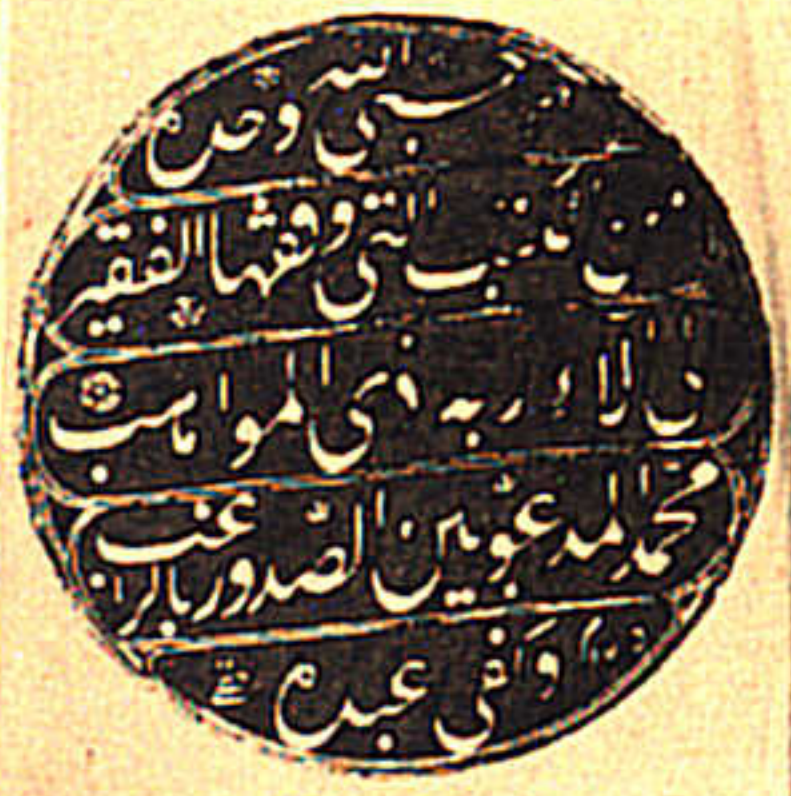 حسبي الله وحده
من الكتب التي وقفها الفقير
الى آلاء ربه ذي المواهب
محمد المدعو بين الصدور بالراغب
وفي عبده